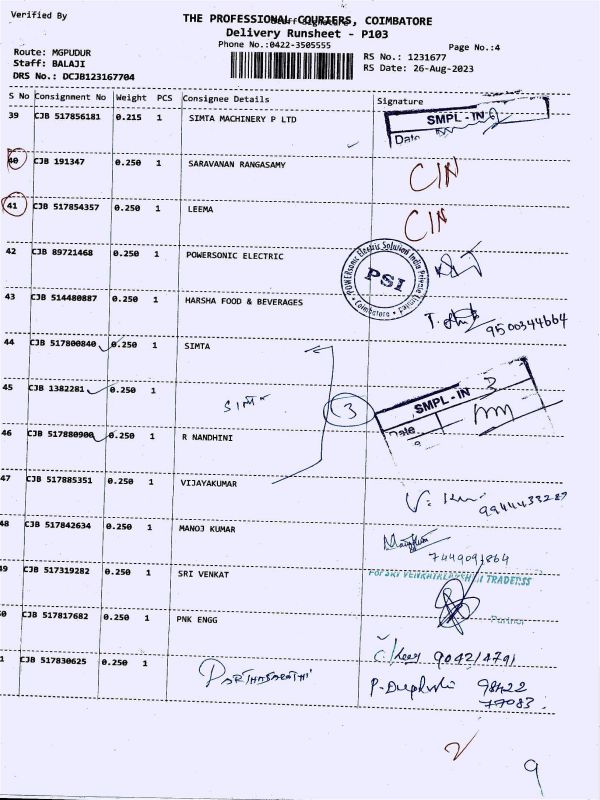 Verified By
THE PROFESSIONAL COURIERS, COIMBATORE
Delivery Runsheet - P103
Phone No.:0422-3505555
Page No.:4
Route: MGPUDUR
Staff: BALAJI
DRS No.: DCJB123167704
RS No.: 1231677
RS Date: 26-Aug-2023
S No Consignment No Weight PCS Consignee Details Signature
39 CJB 517856181 0.215 1 SIMTA MACHINERY P LTD
SMPL - IN
Date
40 CJB 191347 0.250 1 SARAVANAN RANGASAMY CIN
41 CJB 517854357 0.250 1 LEEMA CIN
42 CJB 89721468 0.250 1 POWERSONIC ELECTRIC
POWERsonic Electric Solution India Private Limited
PSI
Coimbatore
43 CJB 514480887 0.250 1 HARSHA FOOD & BEVERAGES 9500344664
44 CJB 517800840 0.250 1 SIMTA
45 CJB 1382281 0.250 1 SIMTA 3
SMPL - IN
Date
46 CJB 517880900 0.250 1 R NANDHINI
47 CJB 517885351 0.250 1 VIJAYAKUMAR
48 CJB 517842634 0.250 1 MANOJ KUMAR
7449091864
49 CJB 517319282 0.250 1 SRI VENKAT
Partner
0 CJB 517817682 0.250 1 PNK ENGG
904214791
1 CJB 517830625 0.250 1 PARTHASARATHI
98422
77083
2
9